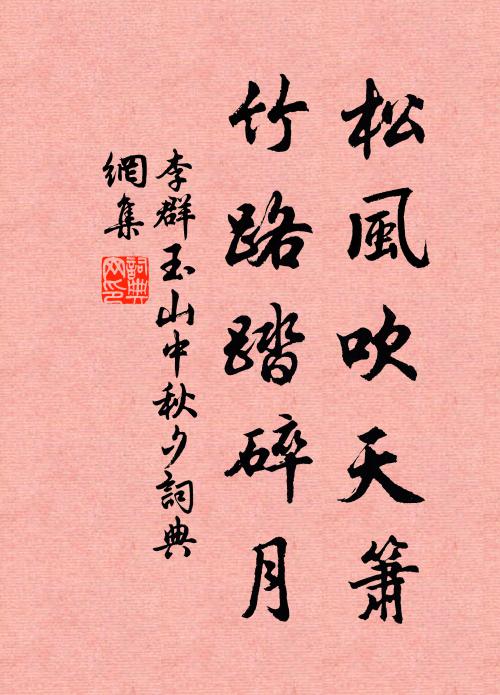 松風吹天簫
竹路踏碎月
李群玉山中秋夕詞典
網集
詞典
網印